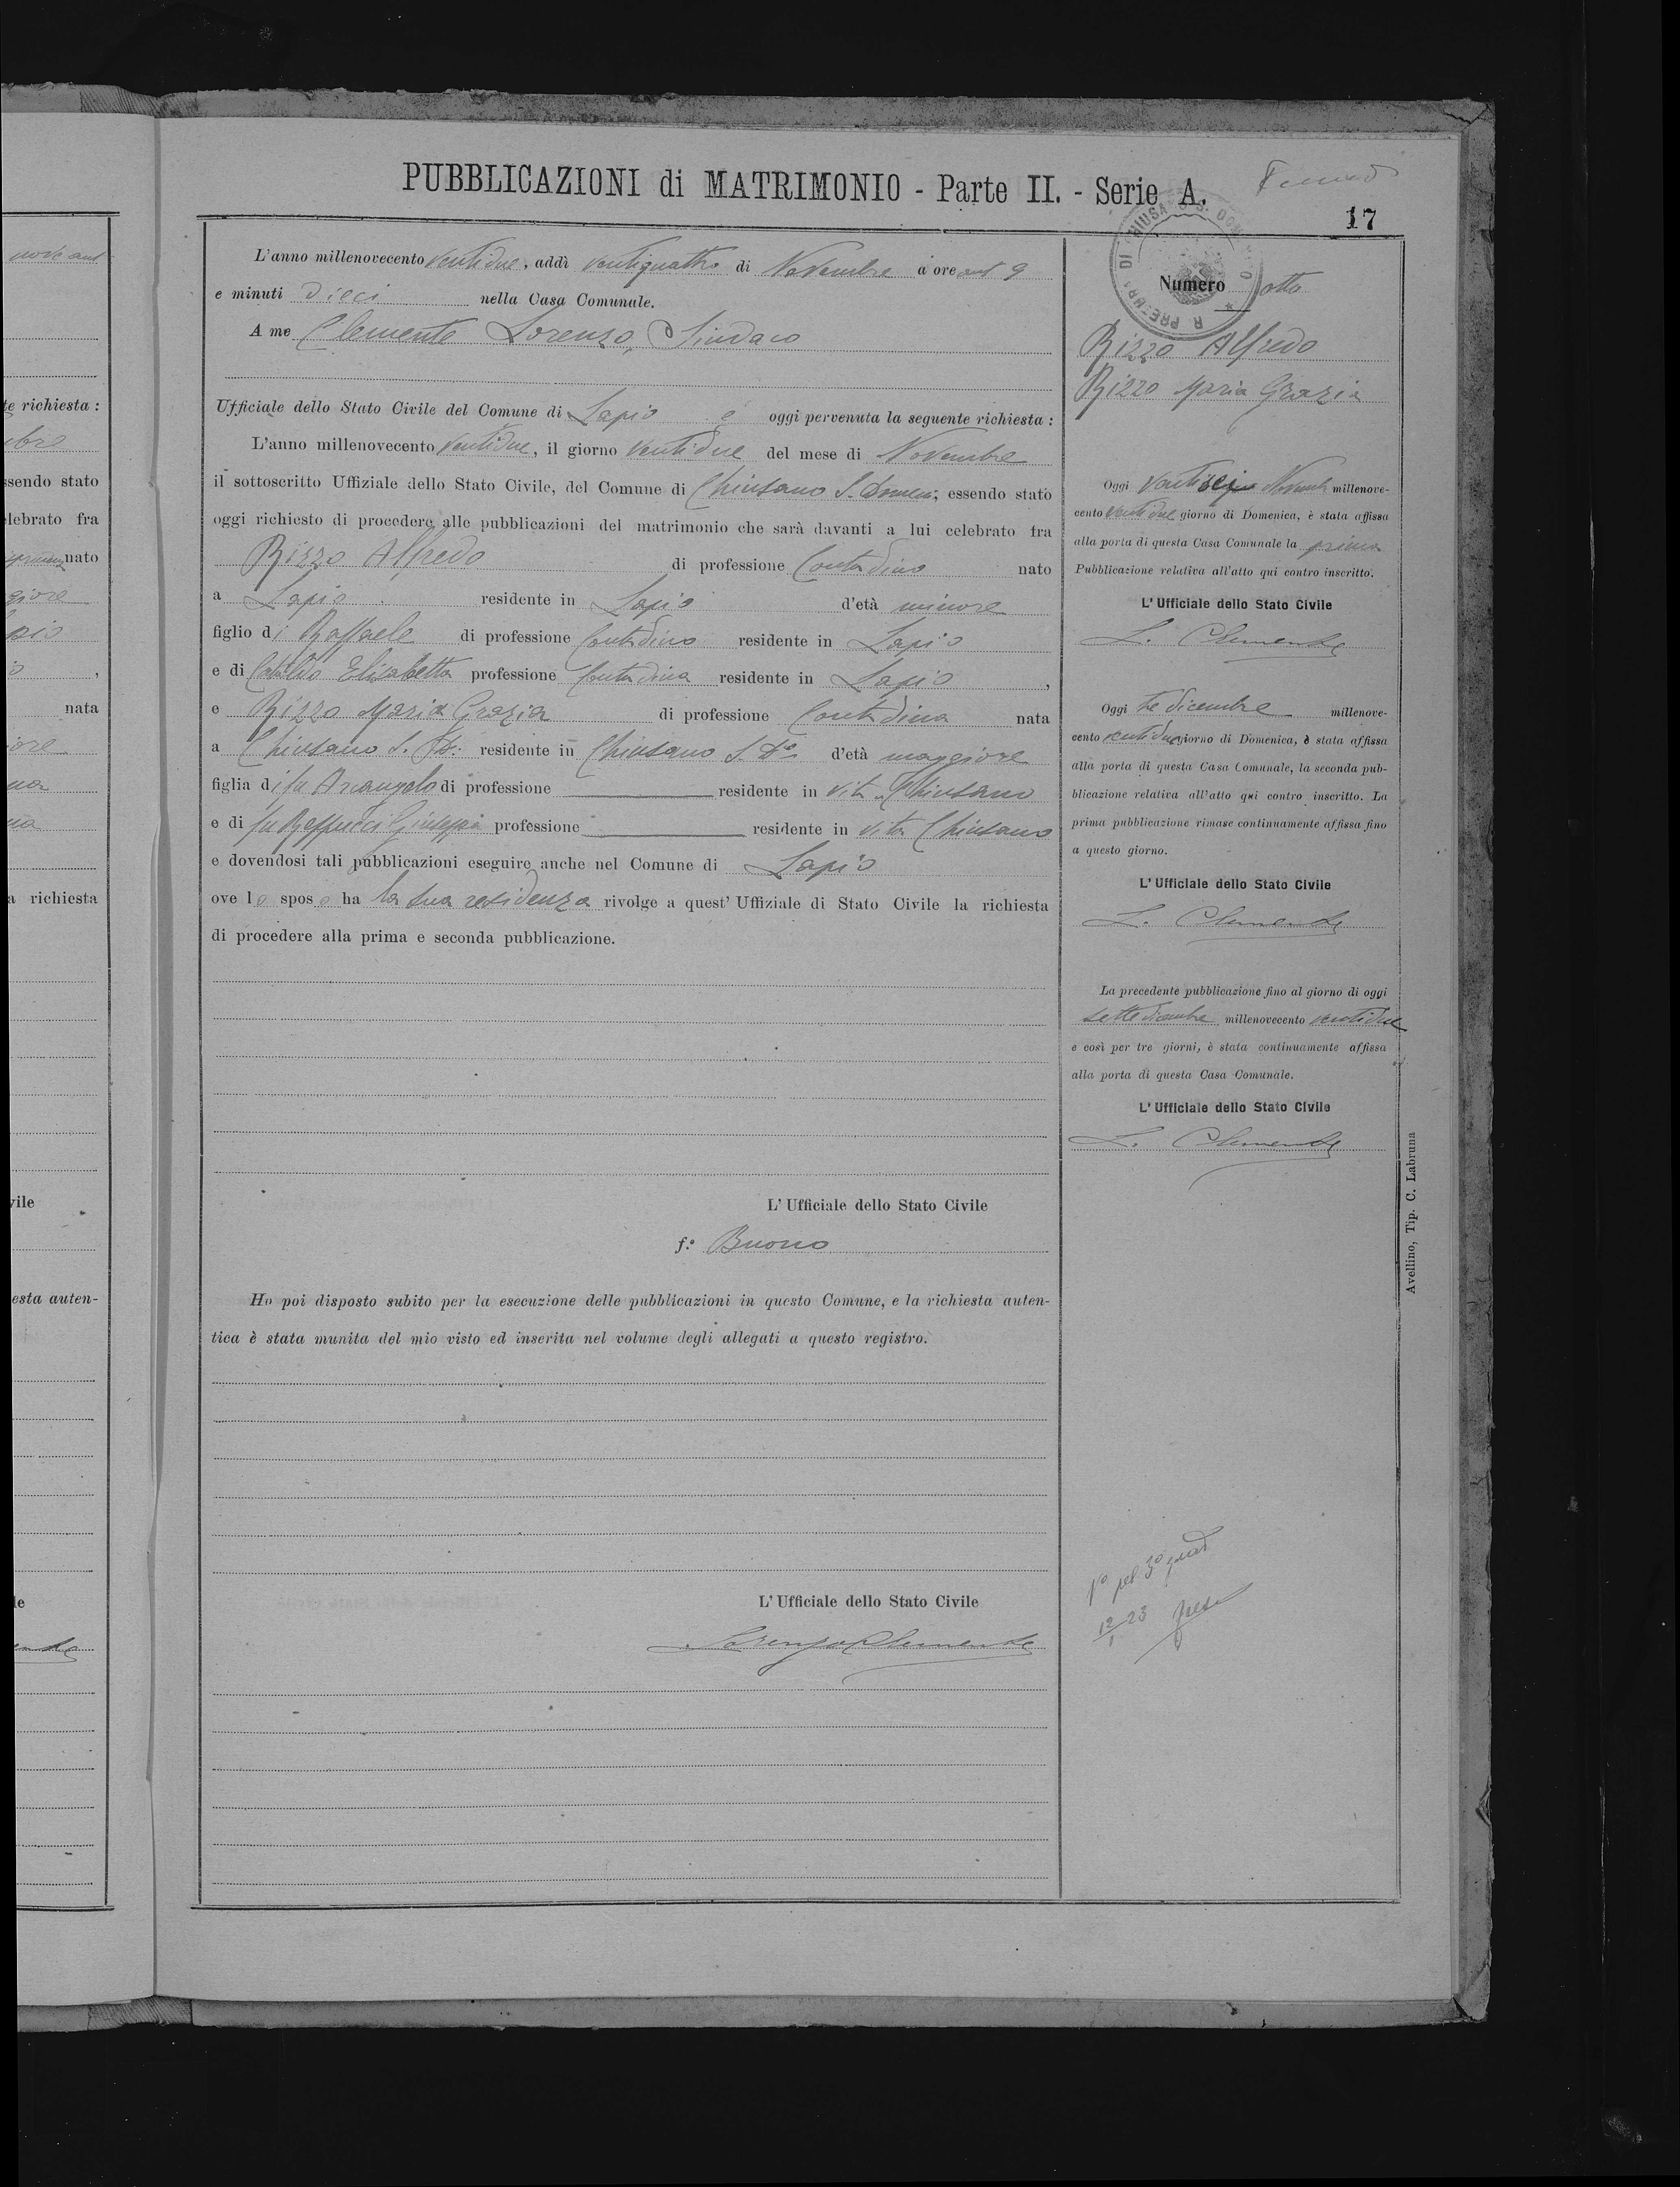 PUBBLICAZIONI di MATRIMONIO - Parte II. - Serie A.
17
L'anno millenovecento ventidue, addì ventiquattro di Novembre a ore ant 9
e minuti Dieci nella Casa Comunale.
A me Clemente Lorenzo, Sindaco
Ufficiale dello Stato Civile del Comune di Lapio è oggi pervenuta la seguente richiesta :
L'anno millenovecento ventidue, il giorno ventidue del mese di Novembre
il sottoscritto Uffiziale dello Stato Civile, del Comune di Chiusano S. Domen: essendo stato
oggi richiesto di procedere alle pubblicazioni del matrimonio che sarà davanti a lui celebrato fra
Rizzo Alfredo di professione Contadino nato
a Lapio residente in Lapio d'età minore
figlio di Raffaele di professione Contadino residente in Lapio
e di Cataldo Elisabetta professione Contadina residente in Lapio,
e Rizzo Maria Grazia di professione Contadina nata
a Chiusano S. D: residente in Chiusano S. Do d'età maggiore
figlia di fu Arcangelo di professione residente in vita Chiusano
e di fu professione residente in vita Chiusano
e dovendosi tali pubblicazioni eseguire anche nel Comune di Lapio
ove lo sposo ha la sua residenza rivolge a quest' Uffiziale di Stato Civile la richiesta
di procedere alla prima e seconda pubblicazione.
L' Ufficiale dello Stato Civile
f.o Buono
Ho poi disposto subito per la esecuzione delle pubblicazioni in questo Comune, e la richiesta auten-
tica è stata munita del mio visto ed inserita nel volume degli allegati a questo registro.
L' Ufficiale dello Stato Civile
Lorenzo Clemente
Numero otto
Rizzo Alfredo
Rizzo Maria Grazia
Oggi ventisei Novemb millenove-
cento ventidue giorno di Domenica, è stata affissa
alla porta di questa Casa Comunale la prima
Pubblicazione relativa all'atto qui contro inscritto.
L' Ufficiale dello Stato Civile
L. Clemente
Oggi tre dicembre millenove-
cento ventidue giorno di Domenica, è stata affissa
alla porta di questa Casa Comunale, la seconda pub-
blicazione relativa all'atto qui contro inscritto. La
prima pubblicazione rimase continuamente affissa fino
a questo giorno.
L' Ufficiale dello Stato Civile
L. Clemente
La precedente pubblicazione fino al giorno di oggi
sette dicembre millenovecento ventidue
e così per tre giorni, è stata continuamente affissa
alla porta di questa Casa Comunale.
L' Ufficiale dello Stato Civile
L. Clemente
Avellino, Tip. C. Labruna